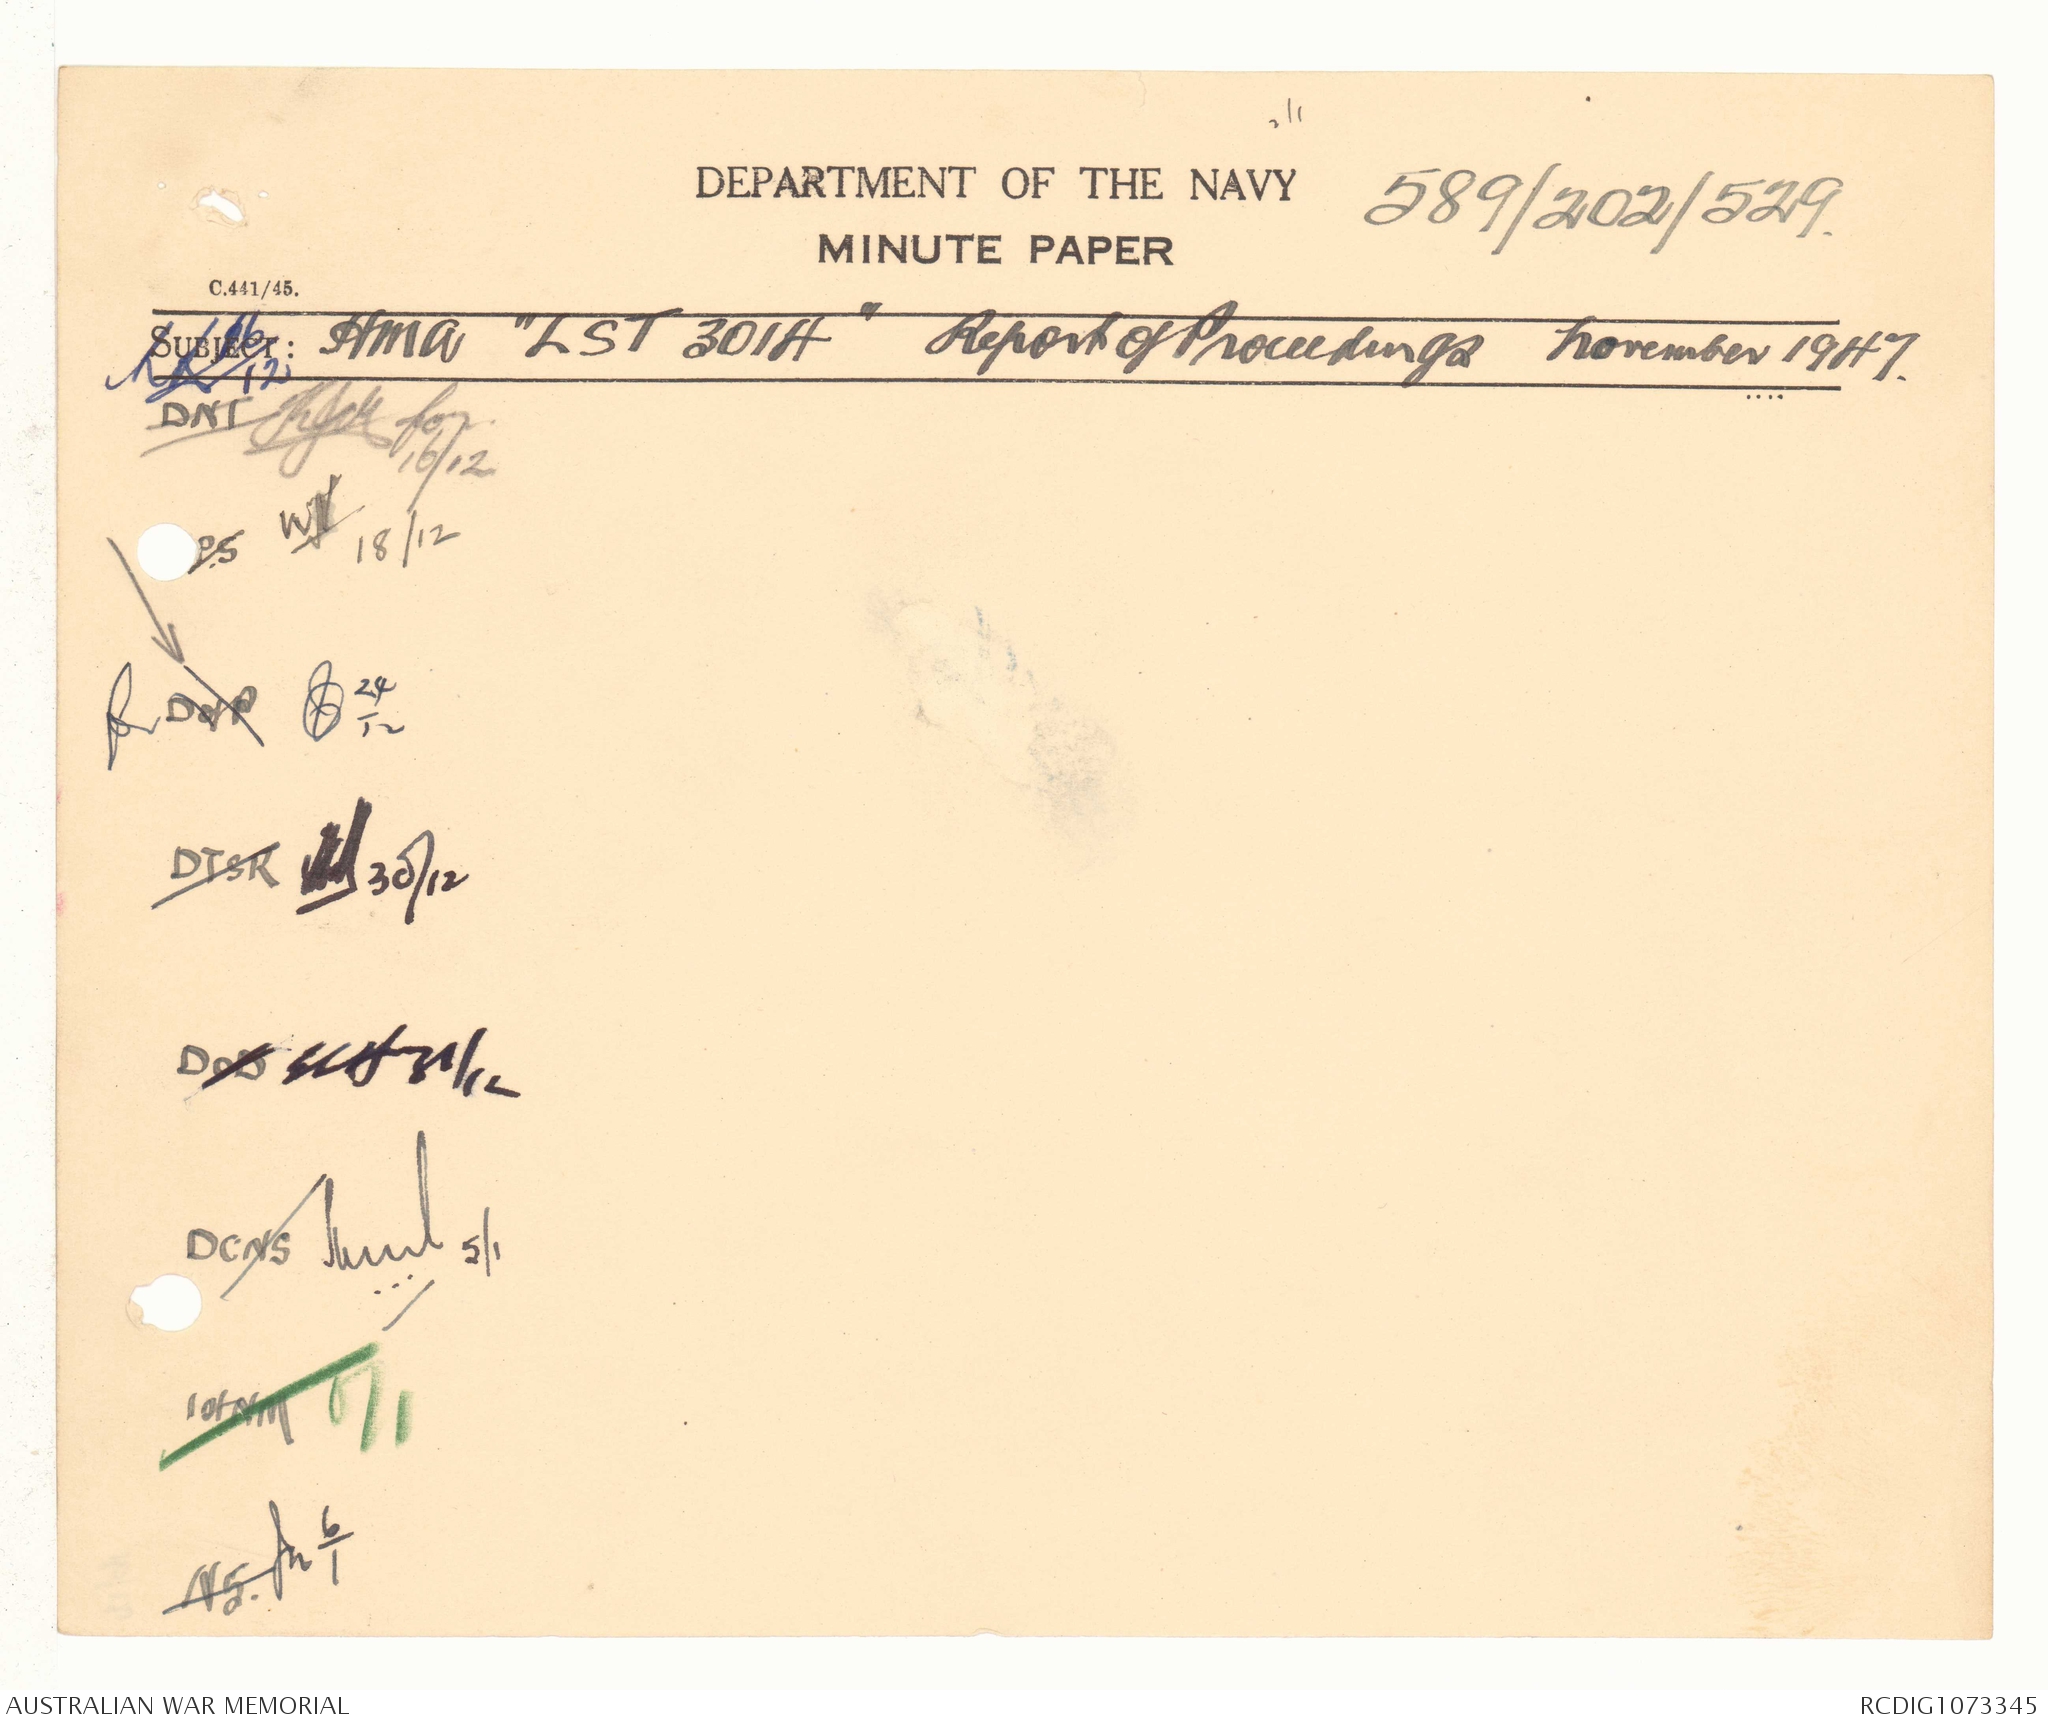 DEPARTMENT OF THE NAVY
589/202/529.
MINUTE PAPER
C.441/45.
SUBJECT: HMA "LST 3014" Report of Proceedings November 1947.
12
DNT for
16/12
18/12
for 24/12
DTSR 30/12
31/12
DCNS 5/1
5/1
NS. 6/1
AUSTRALIAN WAR MEMORIAL
RCDIG1073345